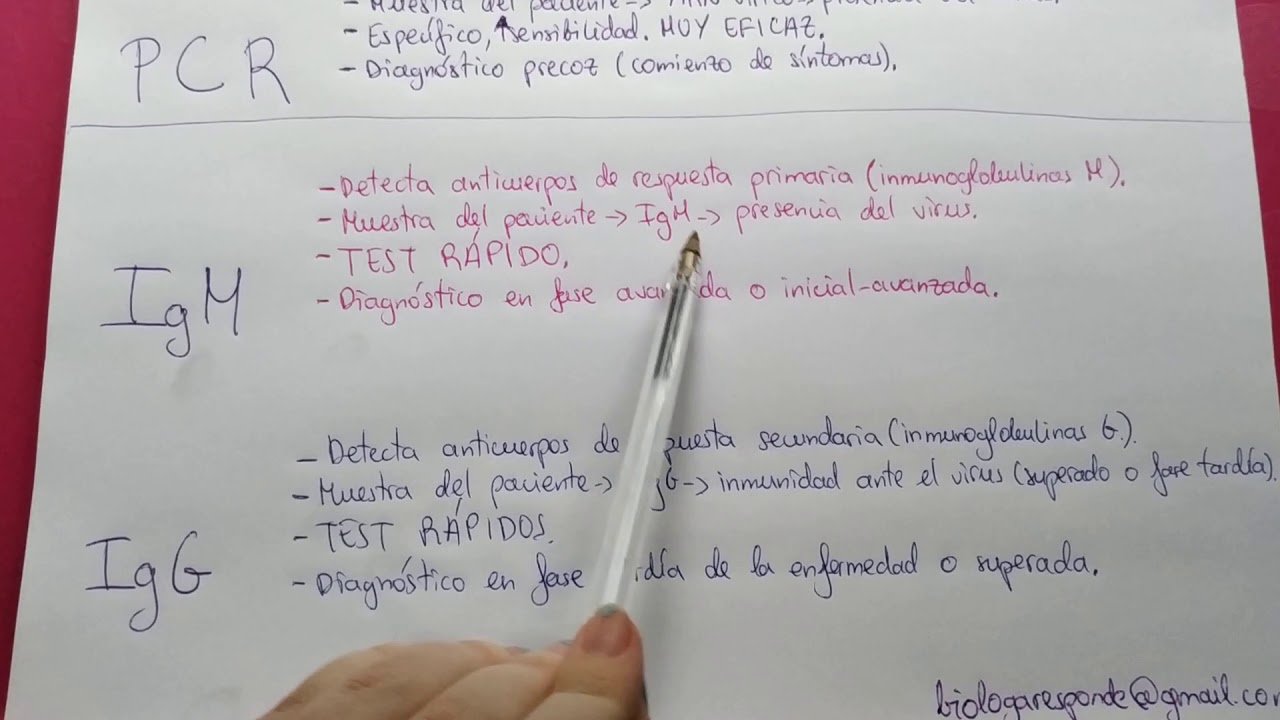 - Muestra del paciente ->
- Específico, ↑sensibilidad. MUY EFICAZ.
- Diagnóstico precoz (comienzo de síntomas).
PCR
- Detecta anticuerpos de respuesta primaria (inmunoglobulinas M).
- Muestra del paciente -> IgM -> presencia del virus.
- TEST RÁPIDO.
- Diagnóstico en fase avanzada o inicial-avanzada.
IgM
- Detecta anticuerpos de puesta secundaria (inmunoglobulinas G).
- Muestra del paciente -> gG -> inmunidad ante el virus (superado o fase tardía).
- TEST RÁPIDOS.
- Diagnóstico en fase rdía de la enfermedad o superada.
IgG
biologaresponde@gmail.co